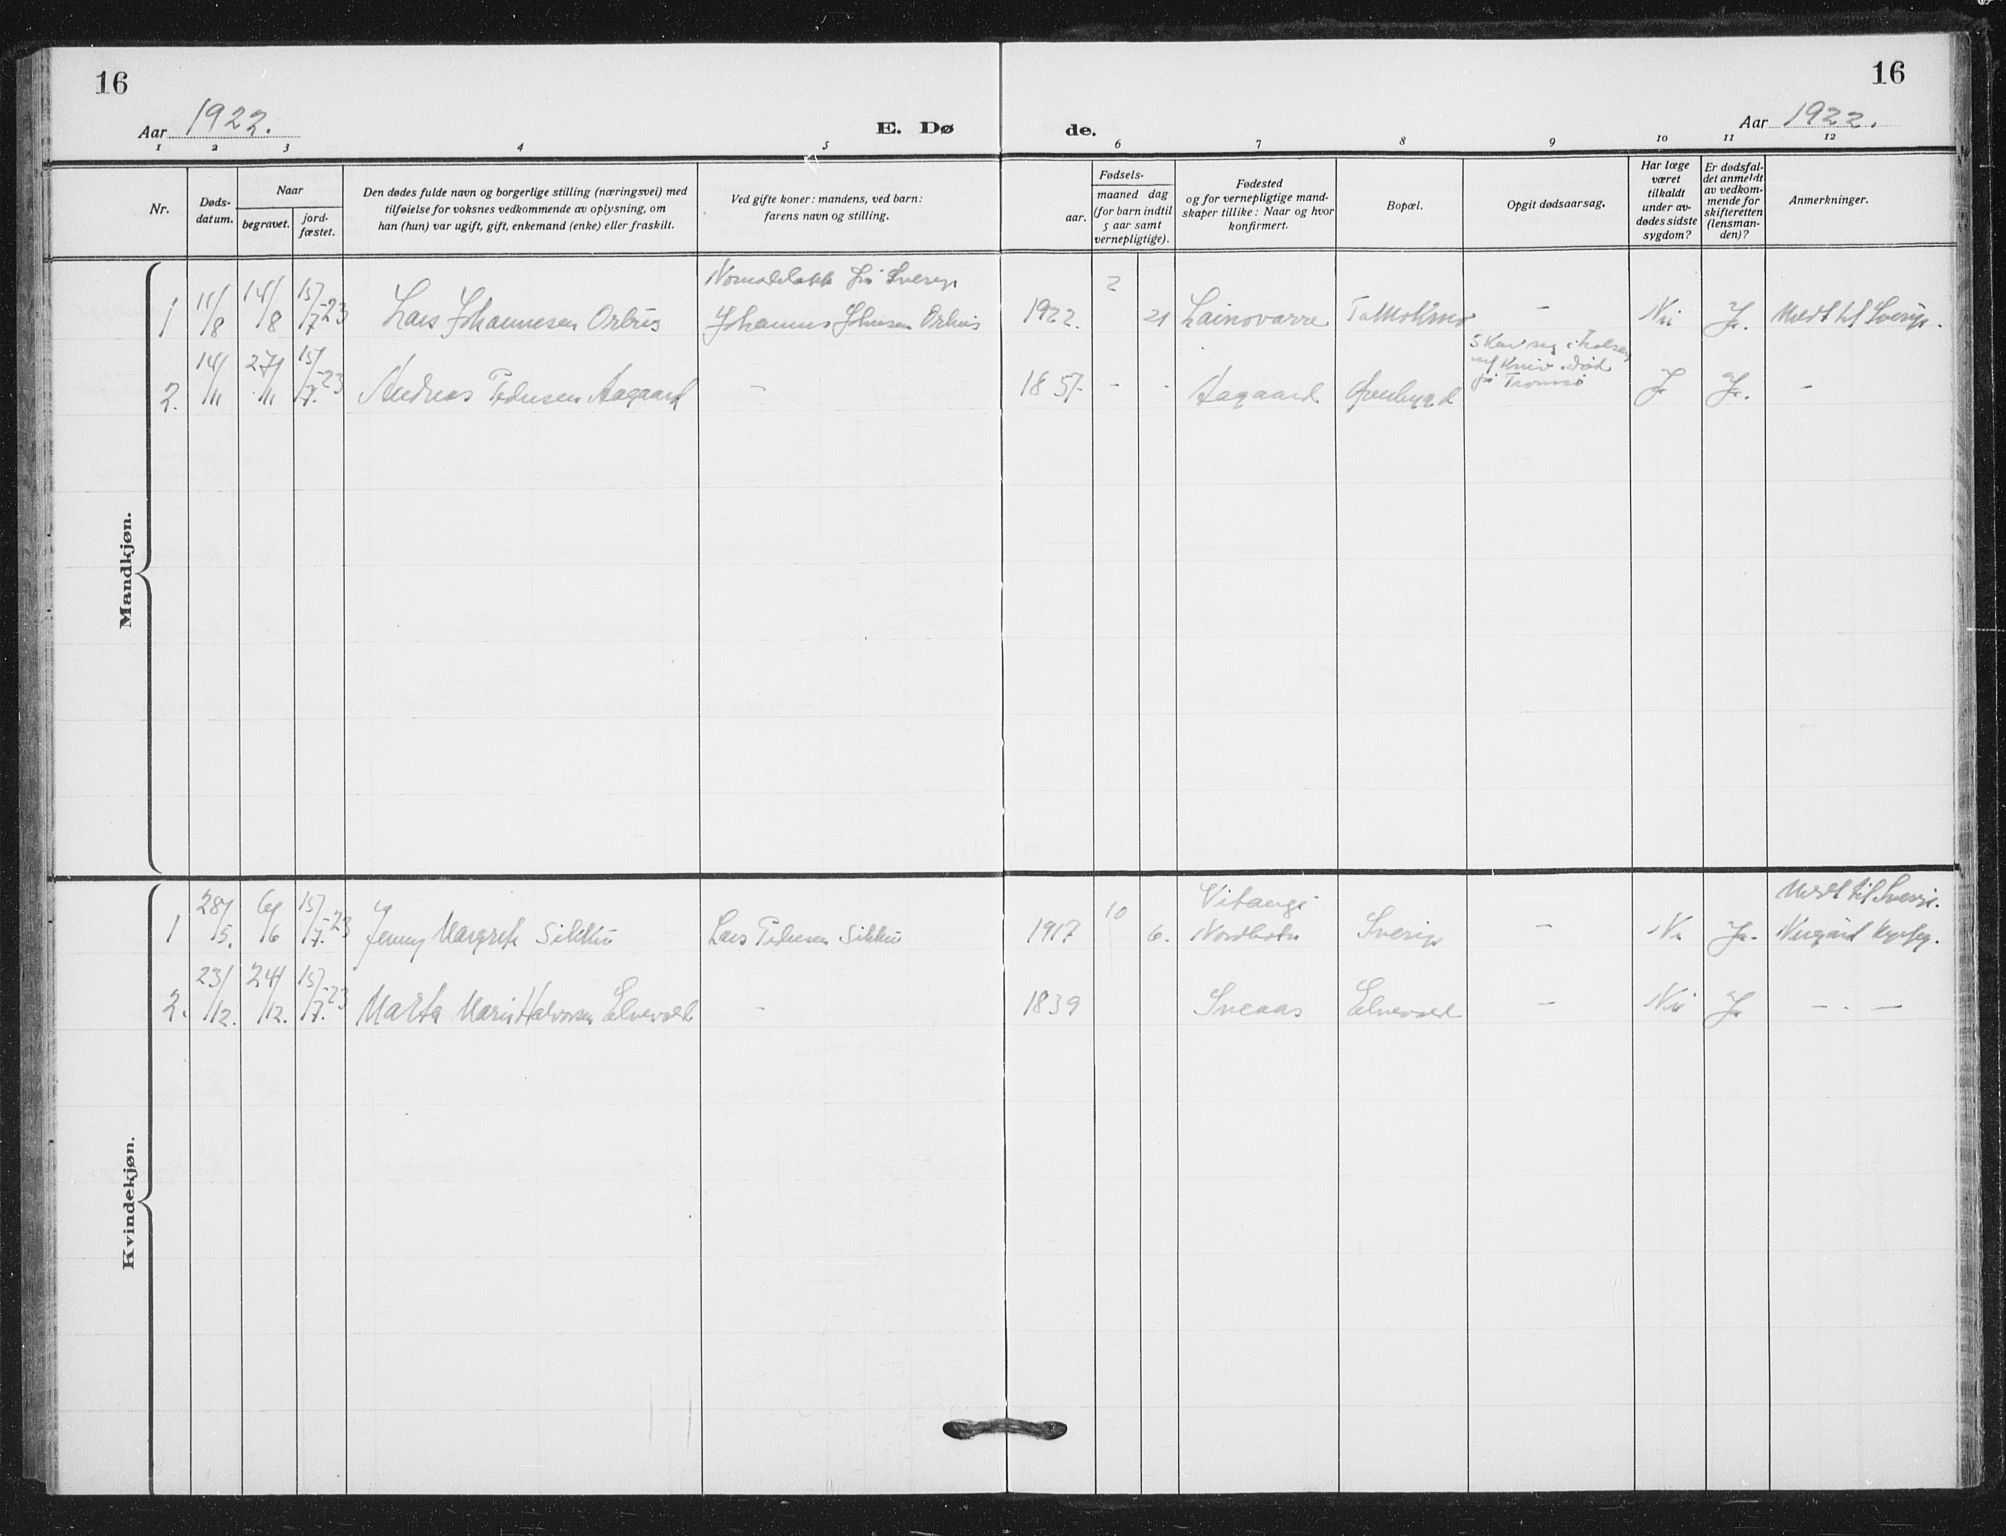 16
16
Aar 1922.
E. Dø
de.
Aar 1922.
1 2 3 4 5 6 7 8 9 10 11 12
Nr.
Døds-
datum.
Naar
begravet.
jord-
fæstet.
Den dødes fulde navn og borgerlige stilling (næringsvei) med
tilføielse for voksnes vedkommende av oplysning, om
han (hun) var ugift, gift, enkemand (enke) eller fraskilt.
Ved gifte koner: mandens, ved barn:
farens navn og stilling.
Fødsels-
aar.
maaned dag
(for barn indtil
5 aar samt
vernepligtige).
Fødested
og for vernepligtige mand-
skaper tillike: Naar og hvor
konfirmert.
Bopæl.
Opgit dødsaarsag.
Har læge
været
tilkaldt
under av-
dødes sidste
sygdom?
Er dødsfal-
det anmeldt
av vedkom-
mende for
skifteretten
(lensman-
den)?
Anmerkninger.
Mandkjøn.
Sverige
1 11/8 14/8 15/7-23 Lars Johannesen Johannes 1922. 2 21 Lainovarre – Nei Ja. Meldt til Sverige.
2. 14/11 27/11 15/7-23 Andreas Pedersen Aagaard – 1857 - - Aagaard Øverbygd
med kniv. Død
på Tromsø
J Ja. –
Kvindekjøn.
Meldt til Sverige.
1 28/5. 6/6 15/7-23 Jenny Margrete Sikku Lars Pedersen Sikku 1917 10 6. Vitangi
Nordbotn Sverige – Nei Ja.
2. 23/12. 24/12. 15/7-23 Marta Marie Halvorsen Elvevold – 1839 Sveaas Elvevold – Nei Ja – . –